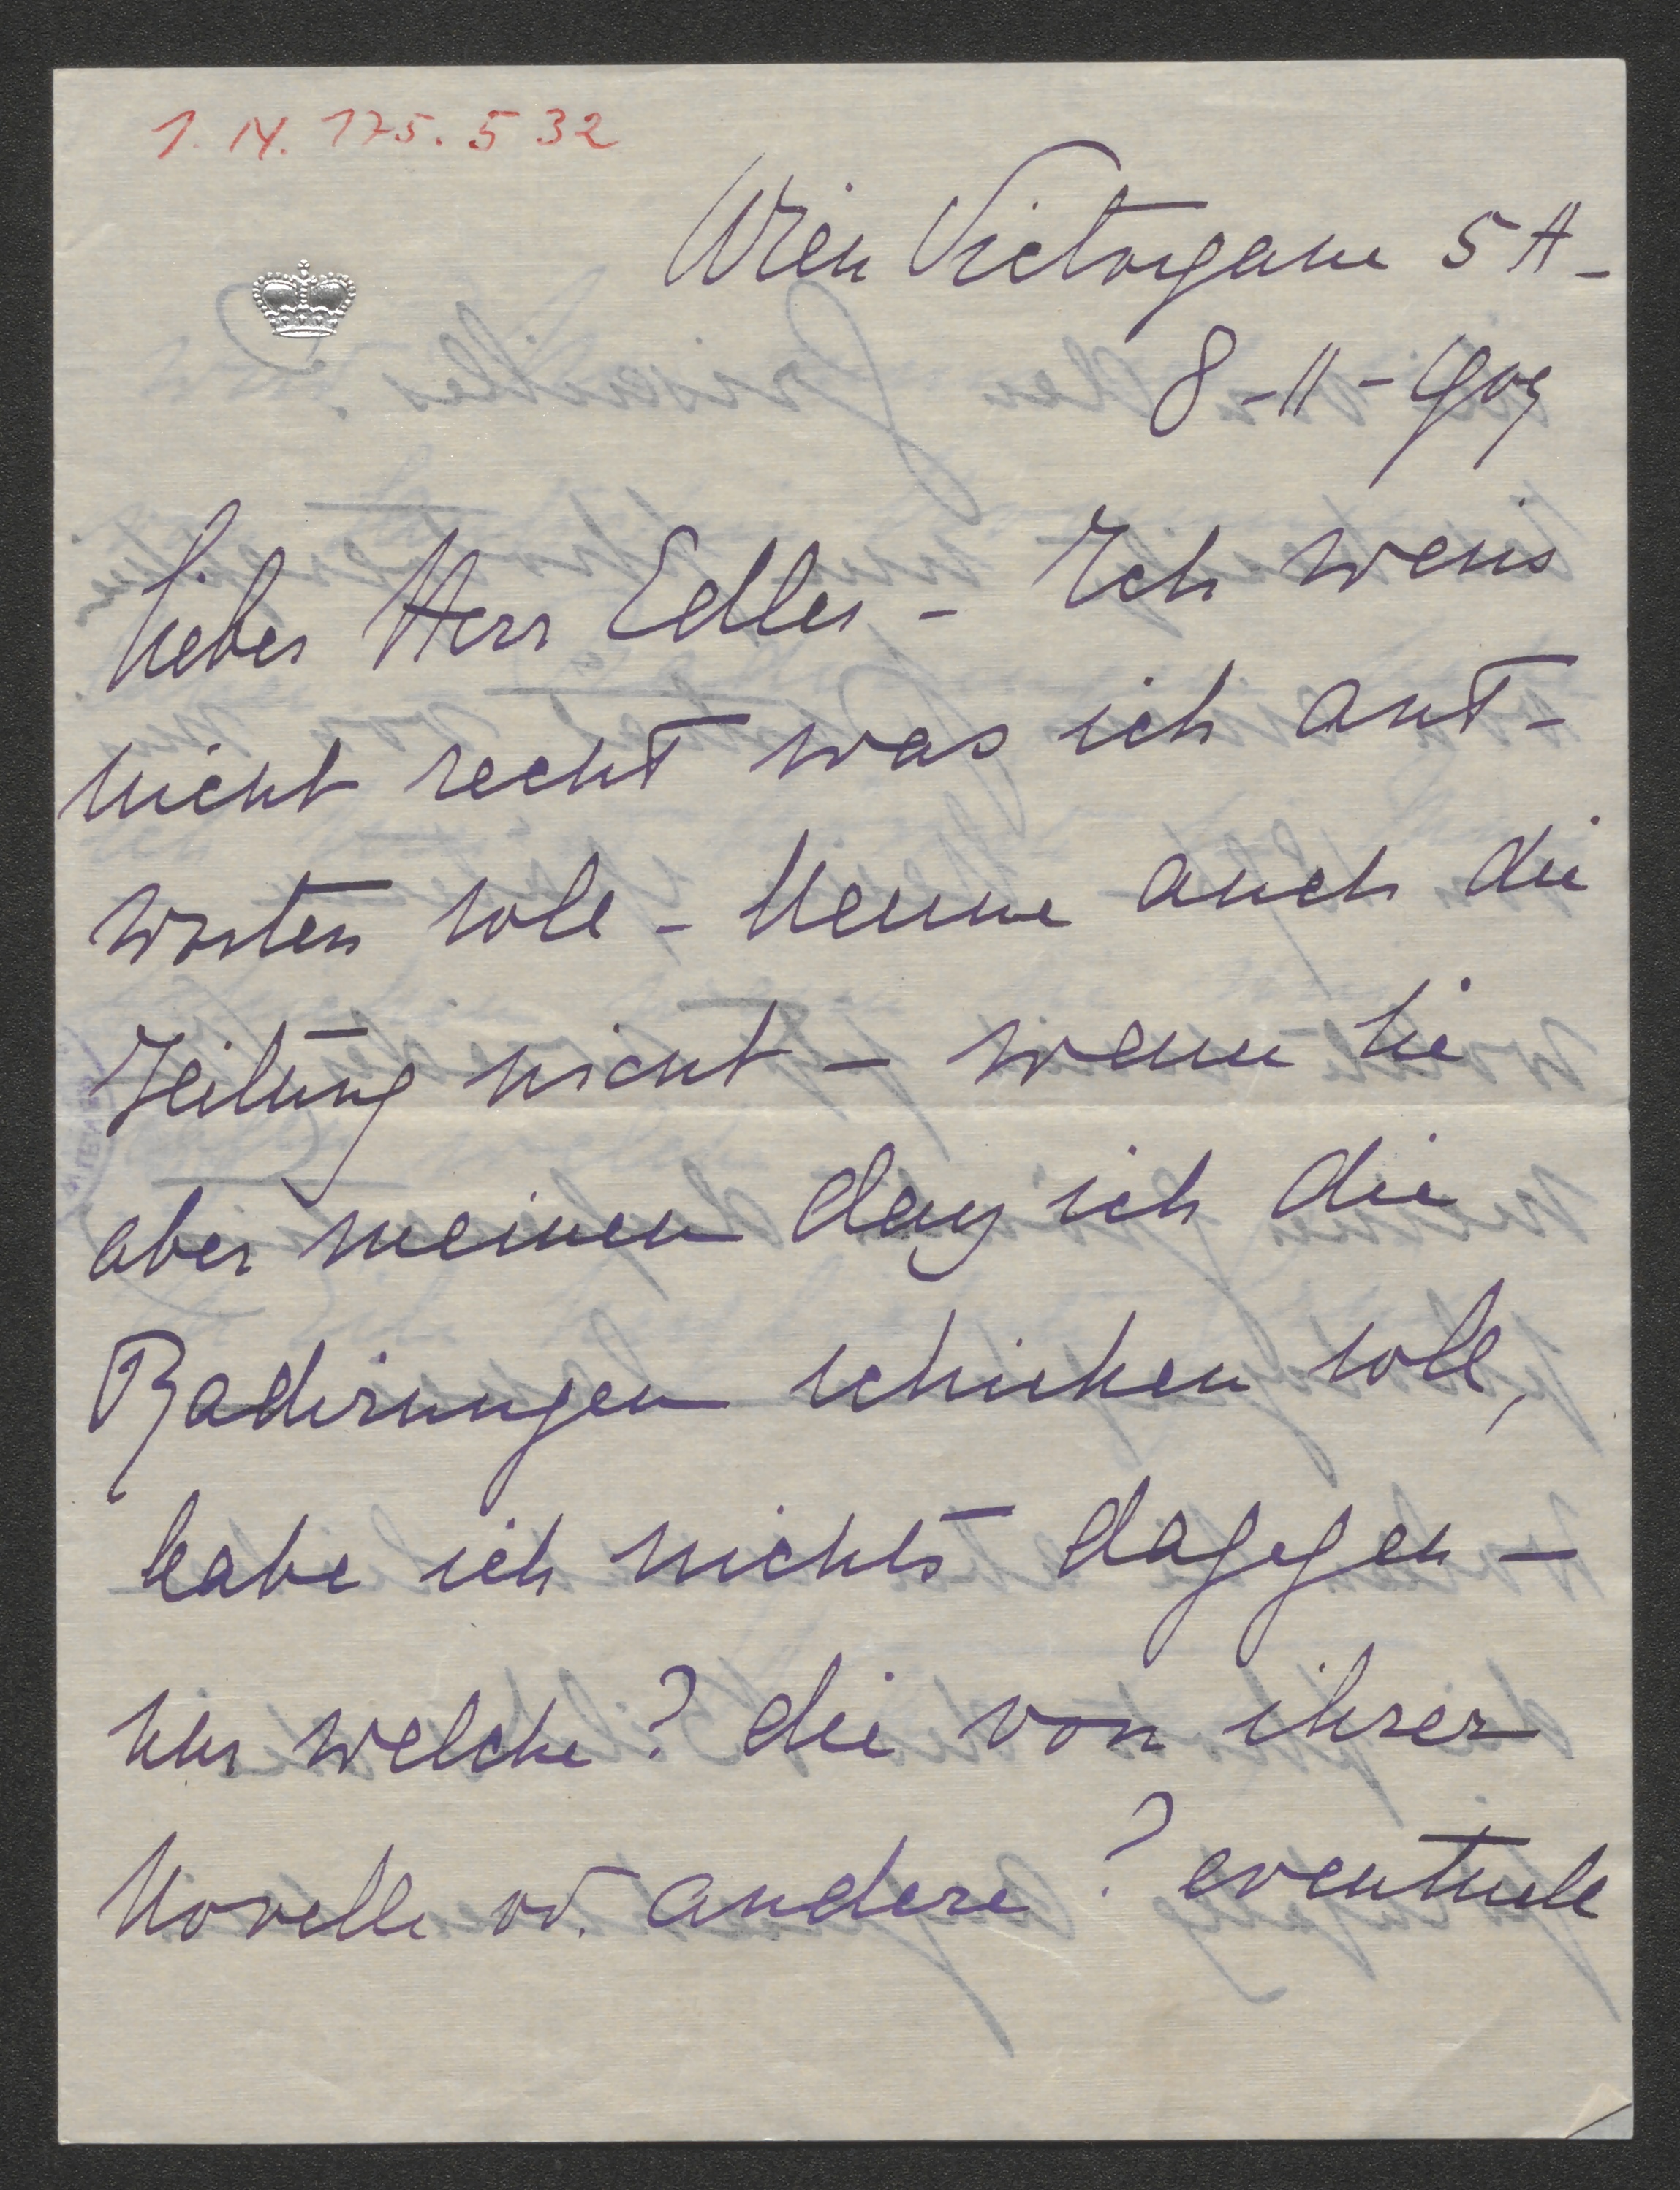 I. N. 175.532
Wien Victorgasse 5 A-
8-11-909
Lieber Herr Edler - Ich weiss
nicht recht was ich ant-
worten soll - Kenne auch die
Zeitung nicht - wenn Sie
aber meinen dass ich die
Radirungen schicken soll,
habe ich nichts dagegen -
nur welche? die von ihrer
Novelle od. andere? eventuell